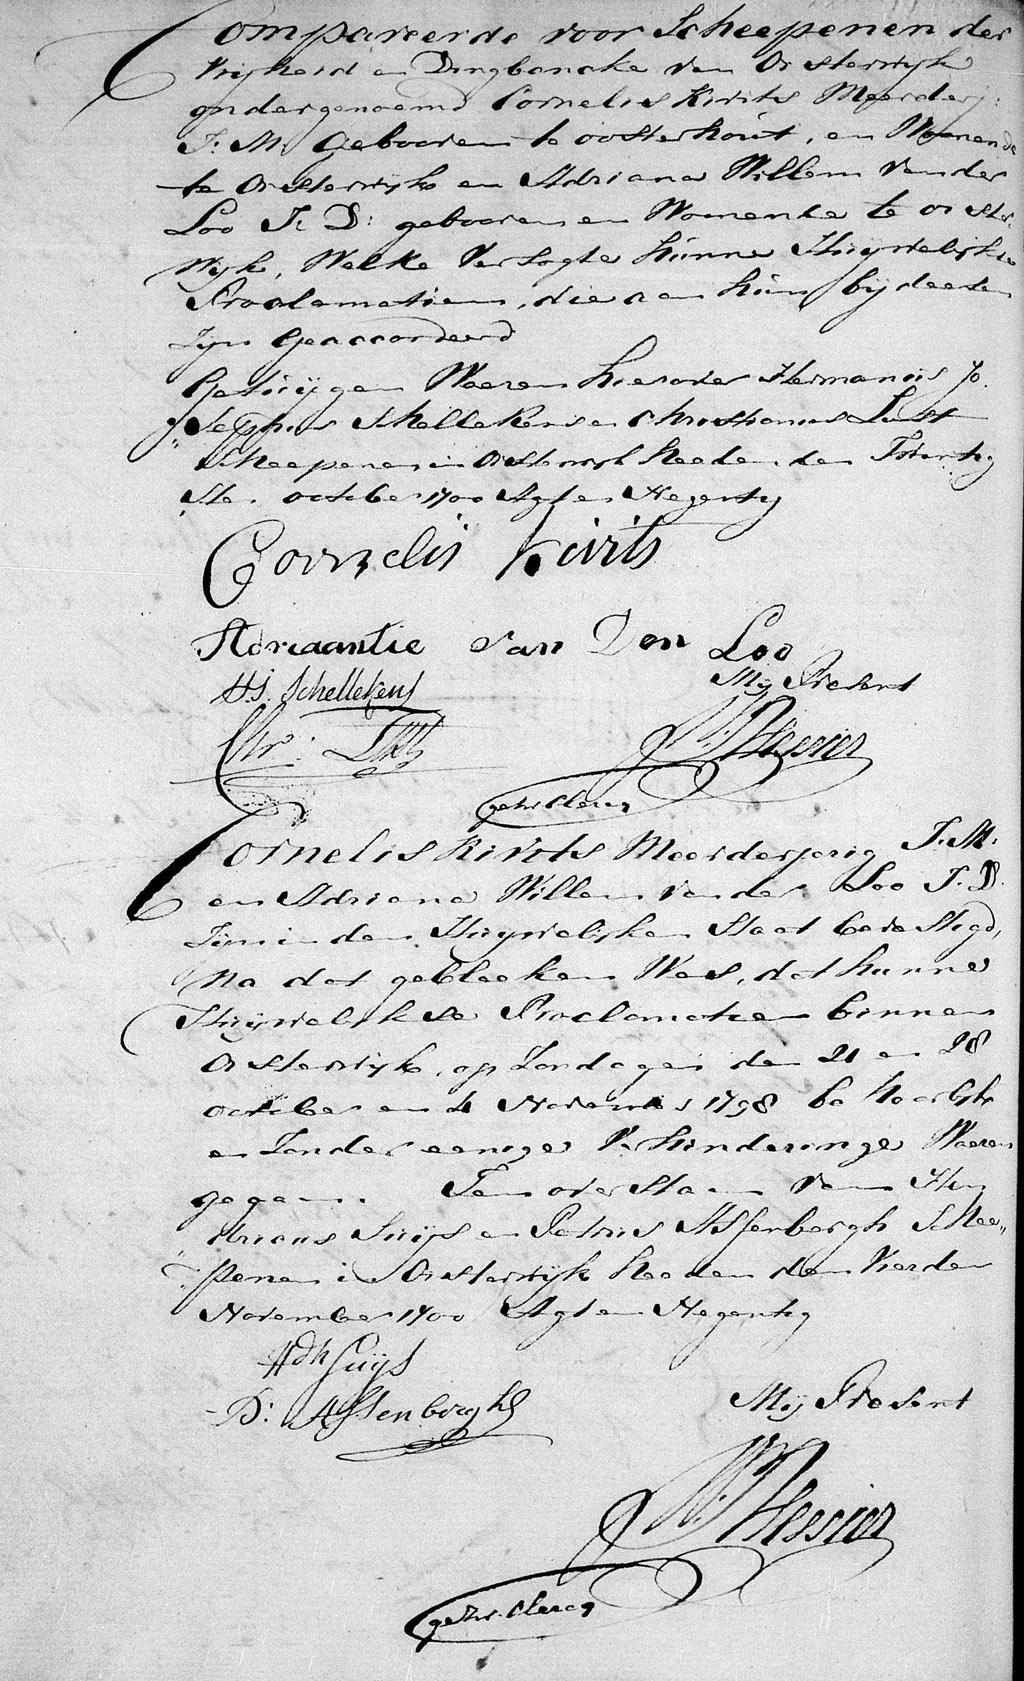 Compareerde voor Scheepenen der
Vrijheid en Dingbancke van Oisterwijk
ondergenoemd Cornelis Kivits Meerderj:
J: M: Gebooren te oosterhout, en Woonende
te Oisterwijk en Adriana Willem van der
Loo J: D: gebooren en Woonende te oister-
wijk, Welke Versogte hunne Huijwelijkse
Proclamatien, die aan hun bij deesen
zijn Geaccordeerd
Getuijgen Waeren hierover Hermanus Jo
„sephus Schellekens en Christianus Lust
Scheepenen in Oisterwijk heeden den Twintig
ste. october 1700 Agt en Negentig
Cornelis kivits
Adriaantie van Den Loo
H.J. Schellekens
Mij Present
Chr:
gezw. Clercq
Cornelis Kivits Meerderjarig J: M.
en Adriana Willem van der Loo J: D.
Zijn in den Huijwelijken Staat bevestigd,
Na dat gebleeken Was, dat hunne
Huijwelijkse Proclamatien binnen
Oisterwijk, op Zondagen den 21 en 28
october en 4 November 1798 behoorlijk
en Zonder eenige Verhinderinge Waeren
gegaan. Ten overstaan van Hen
dricus Suijs en Petrus Assenbergh Schee„
„penen in Oisterwijk heeden den Vierden
November 1700 Agt en Negentig
Hdk Suijs
P: Assenbergh
Mij Present
gezw. Clercq